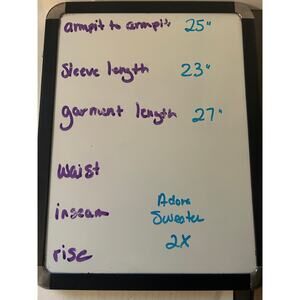 armpit to armpit 25"
Sleeve length 23"
garment length 27"
waist
inseam
rise
Adore
Sweater
2X